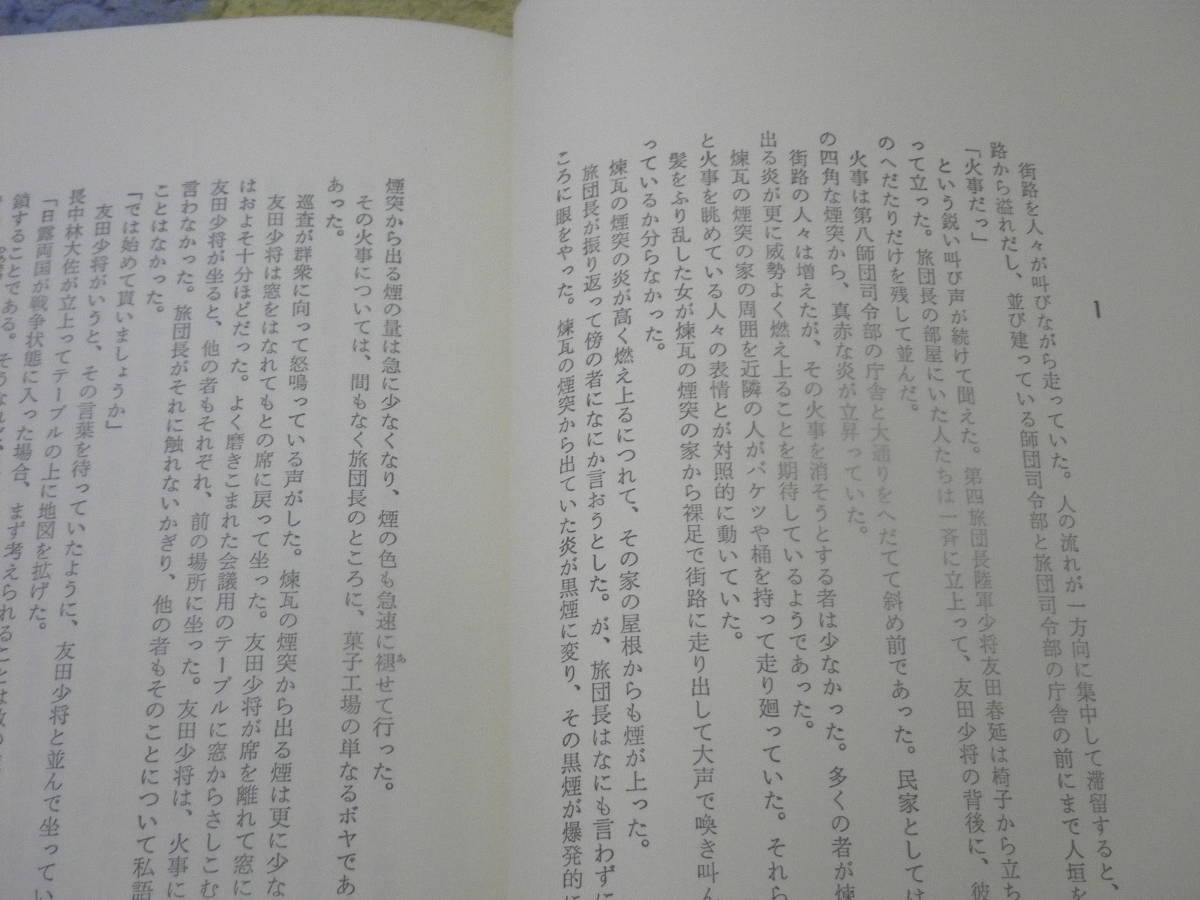 1
街路を人々が叫びながら走っていた。人の流れが一方向に集中して滞留すると、
路から溢れだし、並び建っている師団司令部と旅団司令部の庁舎の前にまで人垣を
「火事だっ」
という鋭い叫び声が続けて聞えた。第四旅団長陸軍少将友田春延は椅子から立ち
って立った。旅団長の部屋にいた人たちは一斉に立上って、友田少将の背後に、彼
のへだたりだけを残して並んだ。
火事は第八師団司令部の庁舎と大通りをへだてて斜め前であった。民家としては
の四角な煙突から、真赤な炎が立昇っていた。
街路の人々は増えたが、その火事を消そうとする者は少なかった。多くの者が煉
出る炎が更に威勢よく燃え上ることを期待しているようであった。
煉瓦の煙突の家の周囲を近隣の人がバケツや桶を持って走り廻っていた。それら
と火事を眺めている人々の表情とが対照的に動いていた。
髪をふり乱した女が煉瓦の煙突の家から裸足で街路に走り出して大声で喚き叫ん
っているか分らなかった。
煉瓦の煙突の炎が高く燃え上るにつれて、その家の屋根からも煙が上った。
旅団長が振り返って傍の者になにか言おうとした。が、旅団長はなにも言わずに
ころに眼をやった。煉瓦の煙突から出ていた炎が黒煙に変り、その黒煙が爆発的に
煙突から出る煙の量は急に少なくなり、煙の色も急速に褪せて行った。
その火事については、間もなく旅団長のところに、菓子工場の単なるボヤであ
あった。
巡査が群衆に向って怒鳴っている声がした。煉瓦の煙突から出る煙は更に少な
友田少将は窓をはなれてもとの席に戻って坐った。友田少将が席を離れて窓に
はおよそ十分ほどだった。よく磨きこまれた会議用のテーブルに窓からさしこむ
友田少将が坐ると、他の者もそれぞれ、前の場所に坐った。友田少将は、火事に
言わなかった。旅団長がそれに触れないかぎり、他の者もそのことについて私語
ことはなかった。
「では始めて貰いましょうか」
友田少将がいうと、その言葉を待っていたように、友田少将と並んで坐ってい
長中林大佐が立上ってテーブルの上に地図を拡げた。
「日露両国が戦争状態に入った場合、まず考えられることは敵の
鎖することである。そうなれば